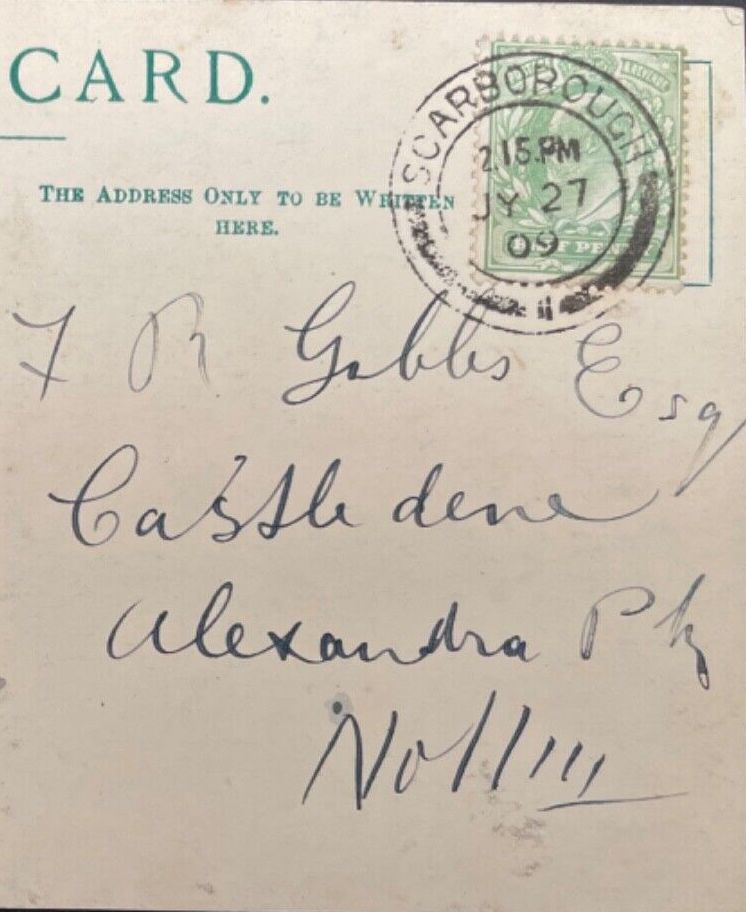 CARD.
THE ADDRESS ONLY TO BE WRITTEN
HERE.
SCARBOROUGH
2.15.PM
JY 27
09
HALF PENNY
F R Gobbs Esq
Castle dene
Alexandra Pk